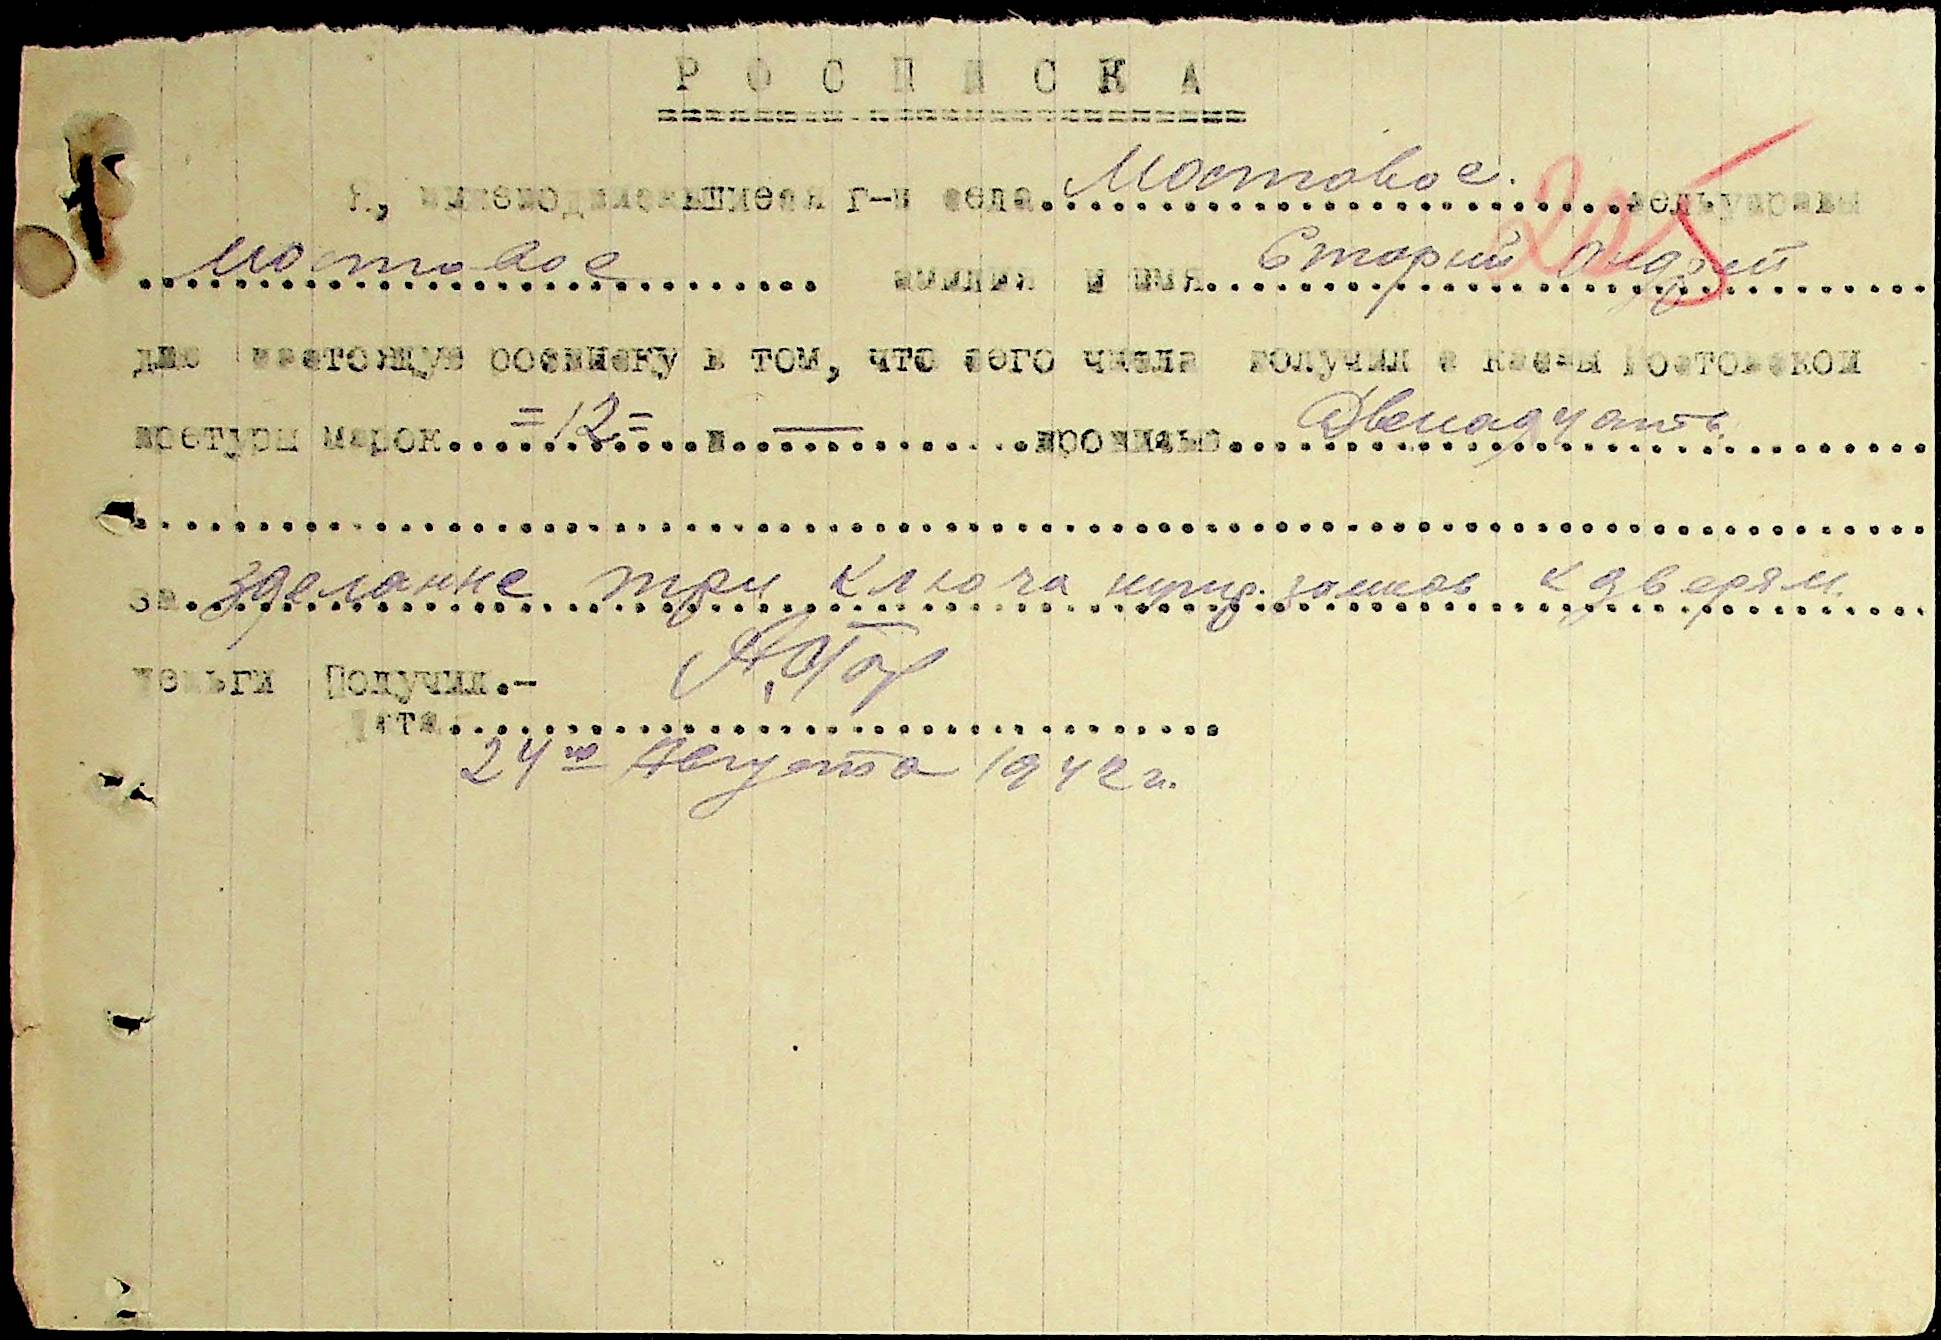 Р О С П И С К А
Я, нижеподписавшийся г-н села Мостовое. сельуправы
205
Мостовое фамилия и имя Старий Андрей
даю настоящую росписку в том, что сего числа получил с кассы Ростовской
претуры марок =12= и — прописью Двенадцать
за зделанне три ключа замков к дверям.
деньги Получил.-
Дата
24го Августа 1942 г.